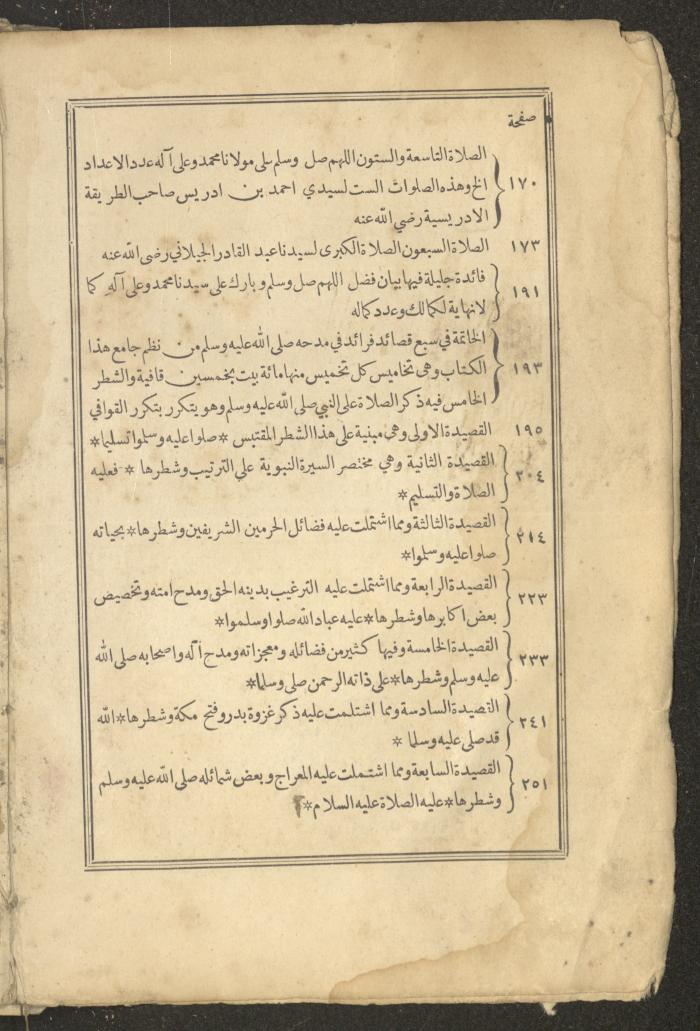 صفحة
الصلاة التاسعة والستون اللهم صل وسلم على مولانا محمد وعلى آله عدد الاعداد
١٧٠ الخ وهذه الصلوات الست لسيدي احمد بن ادريس صاحب الطريقة
الادريسية رضي الله عنه
١٧٣ الصلاة السبعون الصلاة الكبرى لسيدنا عبد القادر الجيلاني رضى الله عنه
١٩١ فائدة جليلة فيها بيان فضل اللهم صل وسلم وبارك على سيدنا محمد وعلى آله كما
لانهاية لكمالك وعدد كماله
الخاتمة في سبع قصائد فرائد في مدحه صلى الله عليه وسلم من نظم جامع هذا
١٩٣ الكتاب وهى تخاميس كل تخميس منها مائة بيت بخمسين قافية والشطر
الخامس فيه ذكر الصلاة على النبي صلى الله عليه وسلم وهو يتكرر بتكرر القوافي
١٩٥ القصيدة الاولى وهى مبنية على هذا الشطر المقتبس * صلوا عليه وسلموا تسليما *
٢٠٤ القصيدة الثانية وهي مختصر السيرة النبوية على الترتيب وشطرها * فعليه
الصلاة والتسليم *
٢١٤ القصيدة الثالثة ومما اشتملت عليه فضائل الحرمين الشريفين وشطرها * بحياته
صلوا عليه وسلموا *
٢٢٣ القصيدة الرابعة ومما اشتملت عليه الترغيب بدينه الحق ومدح امته وتخصيص
بعض اكابرها وشطرها * عليه عباد الله صلوا وسلموا *
٢٣٣ القصيدة الخامسة وفيها كثير من فضائله ومعجزاته ومدح آله واصحابه صلى الله
عليه وسلم وشطرها * على ذاته الرحمن صلى وسلما *
٢٤١ القصيدة السادسة ومما اشتلمت عليه ذكر غزوة بدر وفتح مكة وشطرها * الله
قد صلى عليه وسلما *
٢٥١ القصيدة السابعة ومما اشتملت عليه المعراج وبعض شمائله صلى الله عليه وسلم
وشطرها * عليه الصلاة عليه السلام *